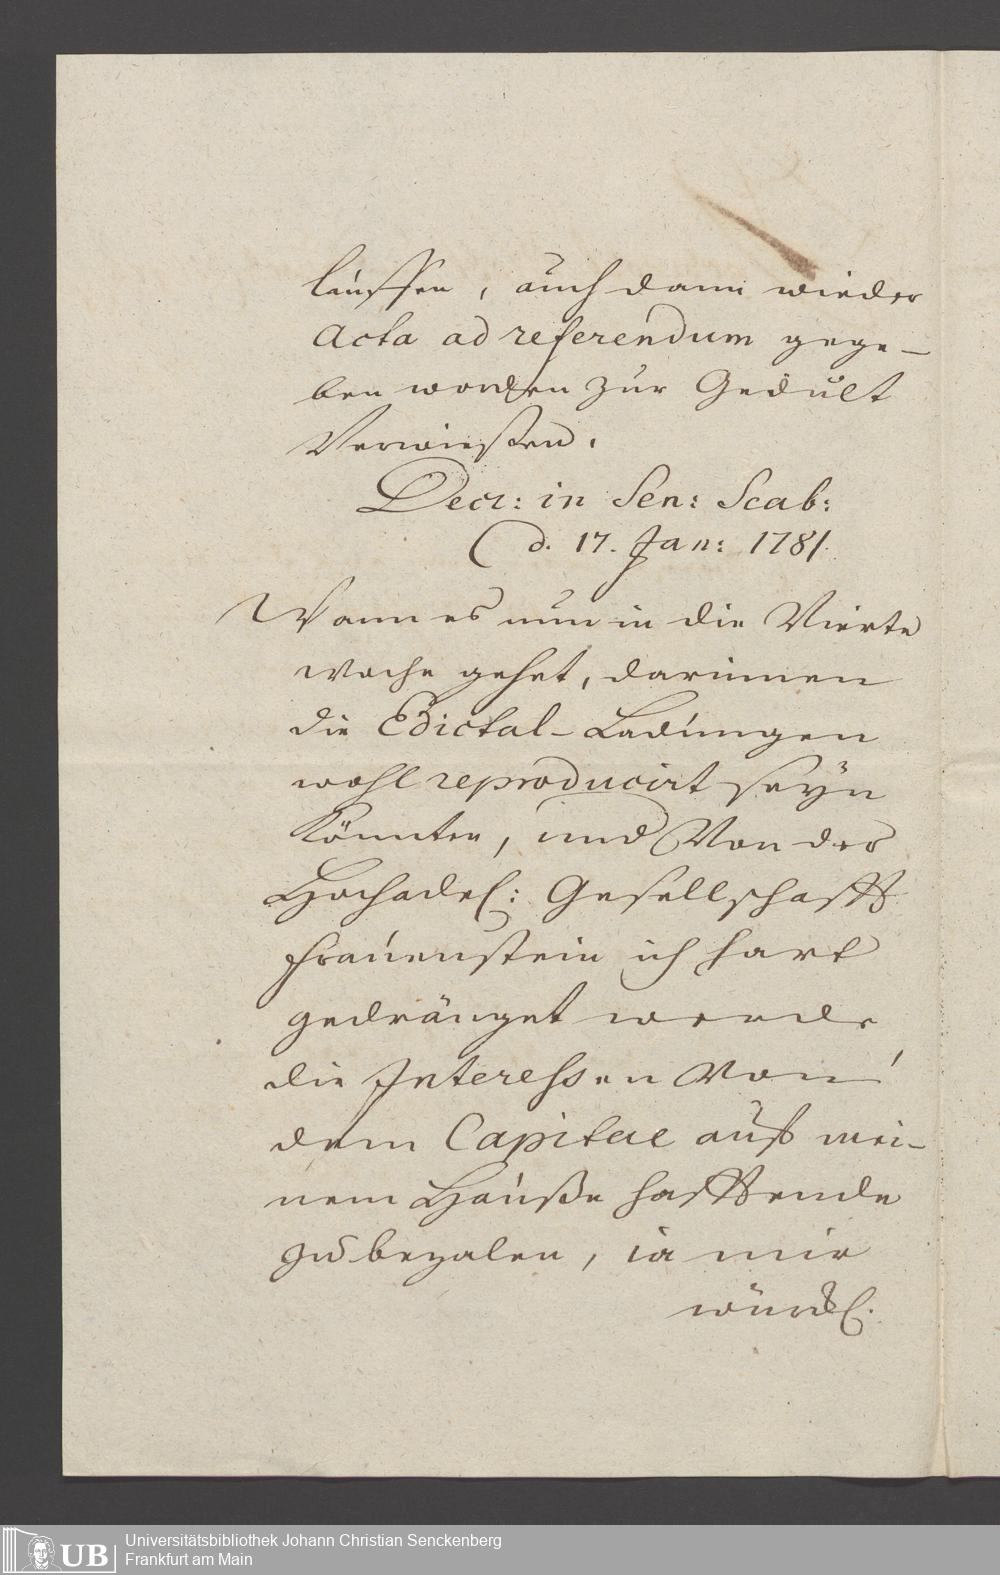 lauffen, auch dann wieder
Acta ad referendum gege-
ben worden zur Gedult
Verwießen.
Decr: in Sen: Scab:
d. 17. Jan: 1781.
Wann es nun in die Vierte
Woche gehet, darinnen
die Edictal-Ladungen
wohl reproducirt seyn
könnten, und Von der
Hochadel: Gesellschafft
Frauenstein ich hart
gedränget werde
die Interessen Von
dem Capitale auf mei-
nem Hauße hafftende
zu bezalen, ia mir
würckl.
UB
Universitätsbibliothek Johann Christian Senckenberg
Frankfurt am Main